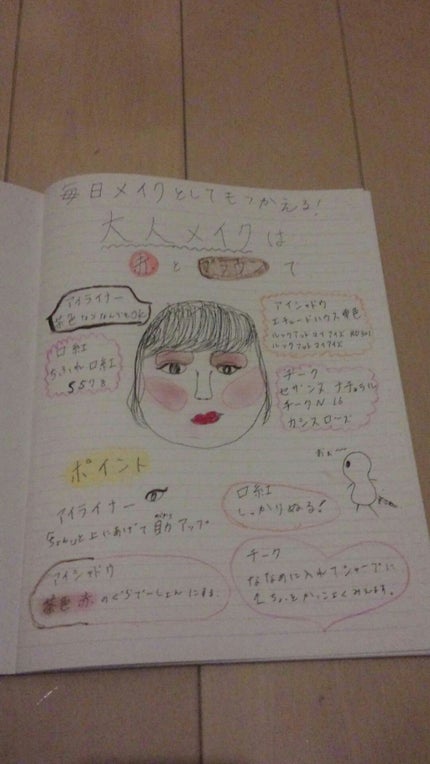 毎日メイクとしてもつかえる!
大人メイクは
赤とブラウンで
アイライナー
茶色などなんでもOK
口紅
ちふれ口紅
557番
アイシャドウ
エチュードハウス 単色
ルックアットマイアイズ
ルックアットマイアイズ
チーク
セザンヌ ナチュラル
チークN 16
カシスローズ
ポイント
アイライナー
ちょんと上にあげて アップ
口紅
しっかりぬる!
アイシャドウ
茶色 赤 のぐらでーしょんにする
チーク
ななめに入れてシャープに
ちょっとかっこよくみえます。